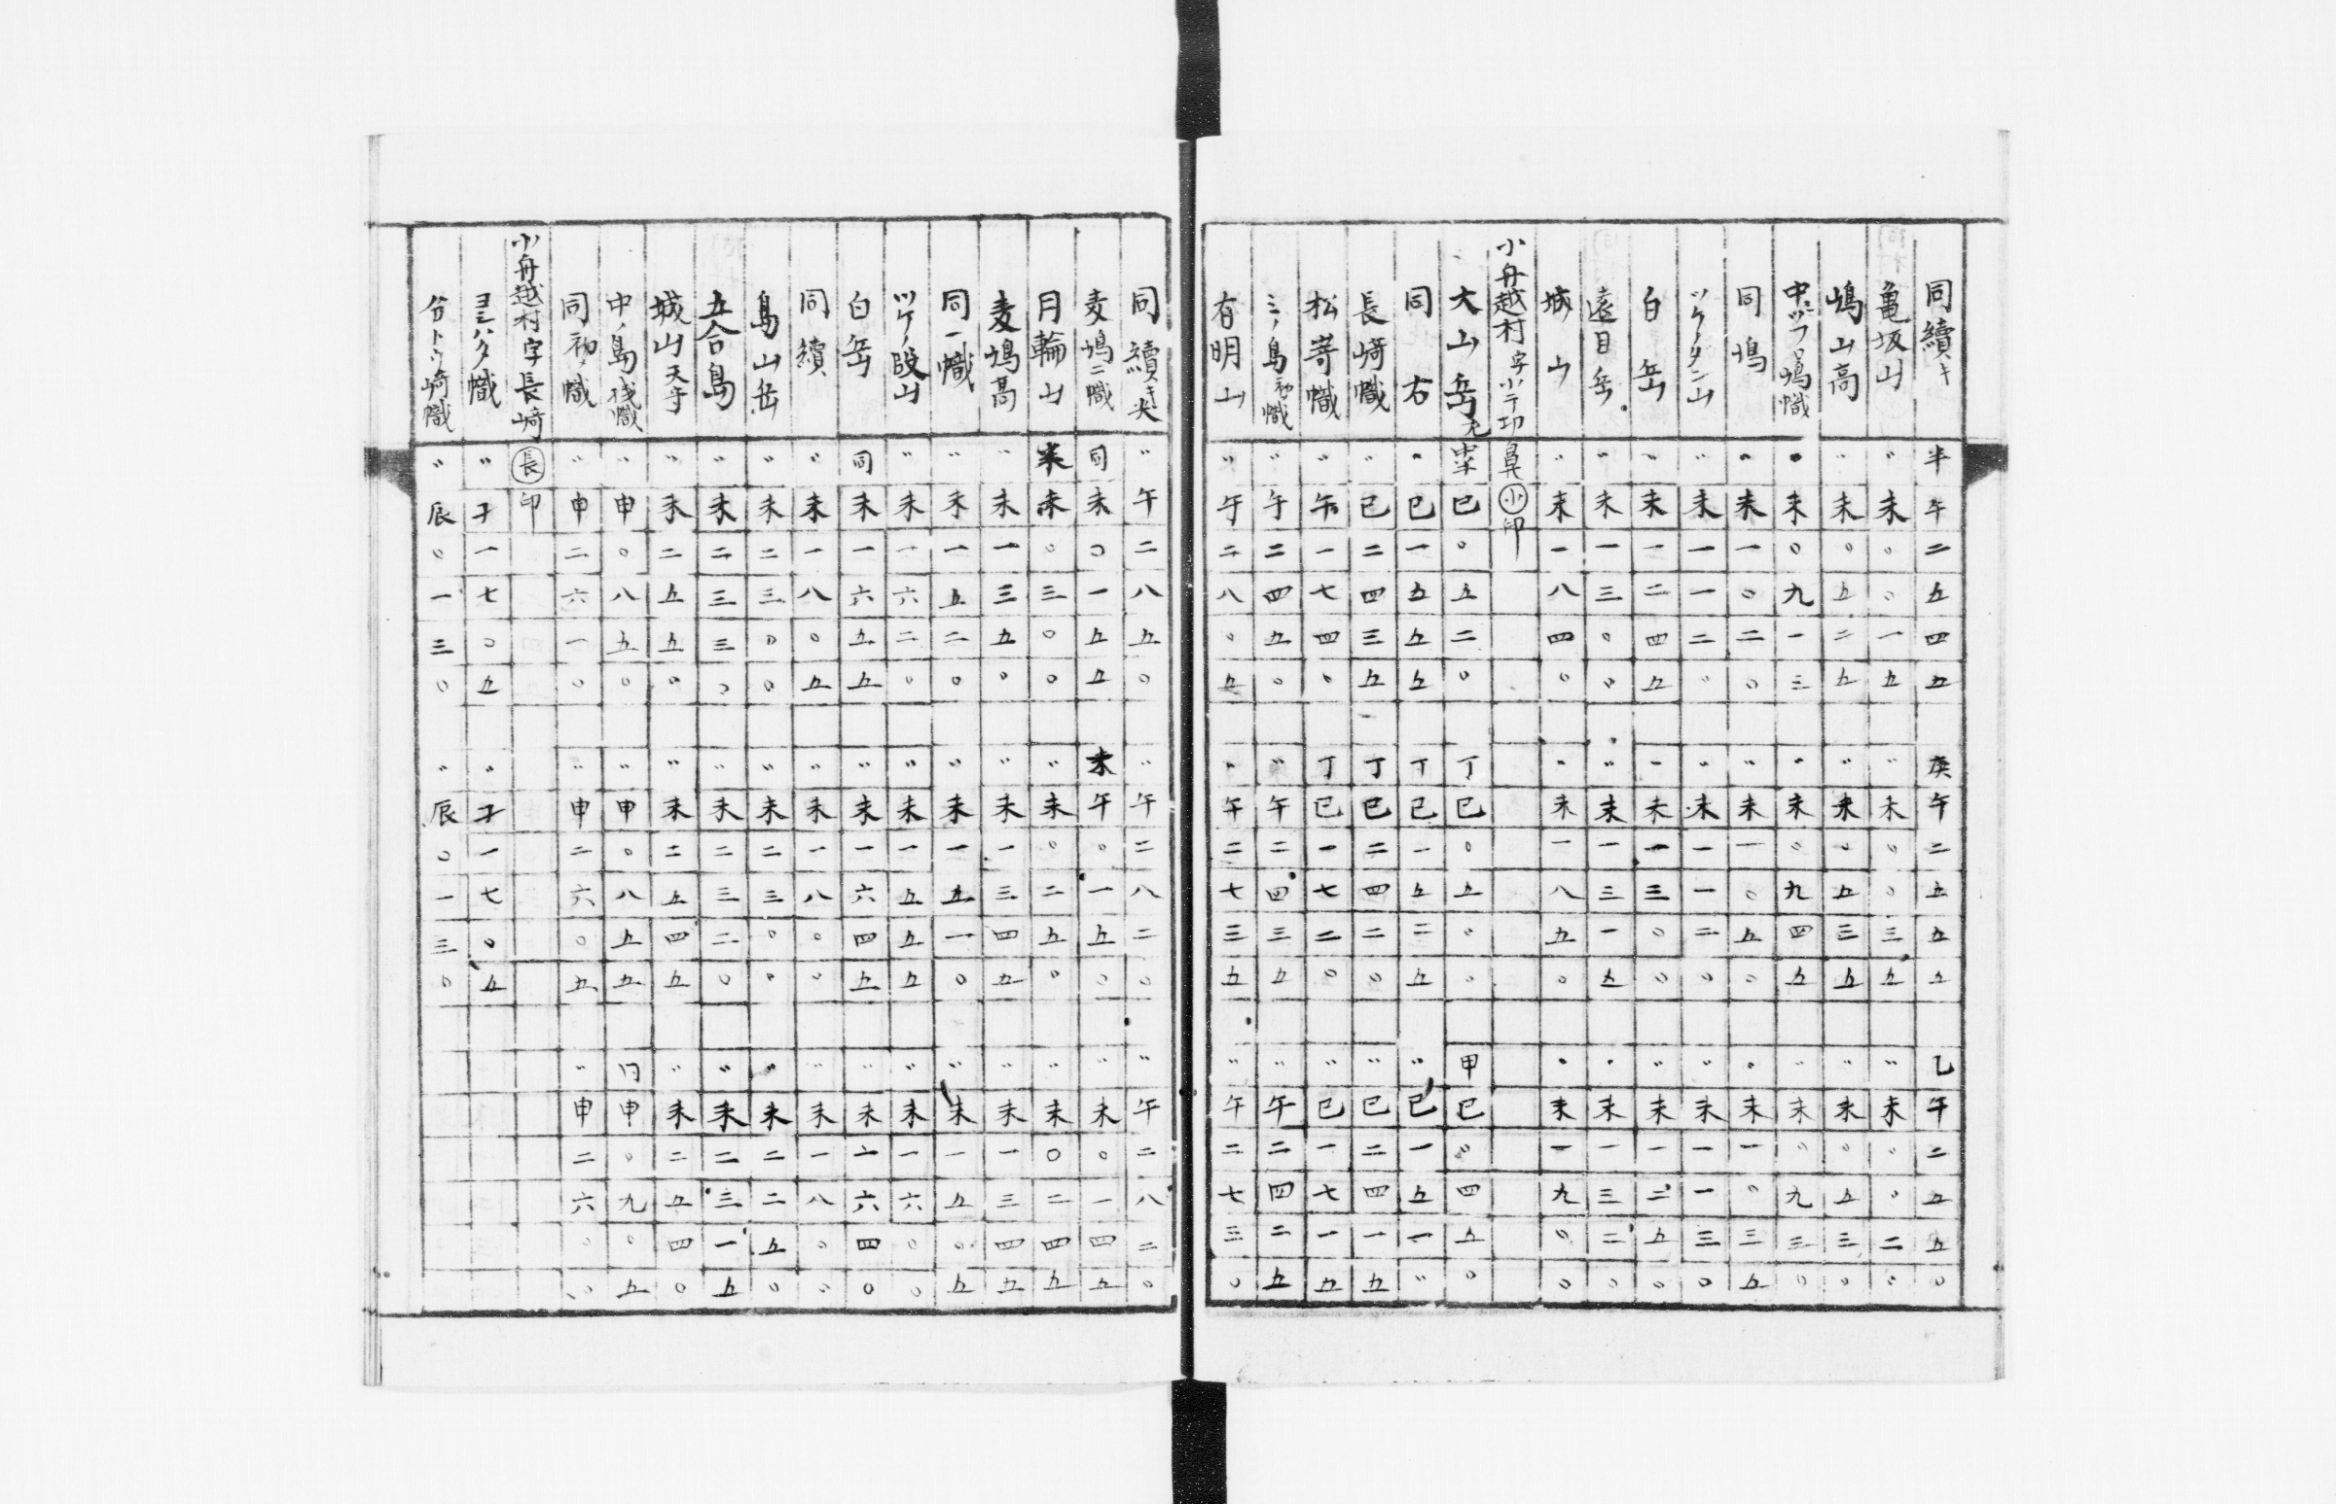 同續キ 半午二五四五 庚午二五五五 乙午二五五〇
亀坂山 〃未〇〇一五 〃未〇〇三五 〃未〇〇二〇
嶋山高 〃未〇五二五 〃未〇五三五 〃未〇五三〇
中ニツフ嶋幟 〃未〇九一三 〃未〇九四五 〃未〇九三〇
同嶋 〃未一〇二〇 〃未一〇五〇 〃未一〇三五
ツケノダン山 〃未一一二〇 〃未一一二〇 〃未一一三〇
白岳 〃未一二四五 〃未一三〇〇 〃未一二五〇
遠目岳 〃未一三〇〇 〃未一三一五 〃未一三二〇
城山 〃未一八四〇 〃未一八五〇 〃未一九〇〇
小舟越村字小 鼻 小印
大山岳 巳〇五二〇 丁巳〇五〇〇 甲巳〇四五〇
同右 〃巳一五五五 丁巳一五二五 〃巳一五一〇
長崎幟 〃巳二四三五 丁巳二四二〇 〃巳二四一五
松嵜幟 〃午一七四〇 丁巳一七二〇 〃巳一七一五
ミノ島初幟 〃午二四五〇 〃午二四三五 〃午二四二五
有明山 〃午二八〇五 〃午二七三五 〃午二七三〇
同續キ尖 〃午二八五〇 〃午二八二〇 〃午二八二〇
麦嶋二幟 同未〇一五五 未午〇一五〇 〃未〇一四五
月輪山 未未〇三〇〇 〃未〇二五〇 〃未〇二四五
麦嶋高 〃未一三五〇 〃未一三四五 〃未一三四五
同一幟 〃未一五二〇 〃未一五一〇 〃未一五〇五
ツケノ段山 〃未一六二〇 〃未一五五五 〃未一六〇〇
白岳 同未一六五五 〃未一六四五 〃未一六四〇
同續 〃未一八〇五 〃未一八〇〇 〃未一八〇〇
島山岳 〃未二三〇〇 〃未二三〇〇 〃未二二五〇
五合島 〃未二三三〇 〃未二三二〇 〃未二三一五
城山天守 〃未二五五〇 〃未二五四五 〃未二五四〇
中ノ島幟 〃申〇八五〇 〃申〇八五五 〃申〇九〇五
同初幟 〃申二六一〇 〃申二六〇五 〃申二六〇〇
小舟越村字長崎 長印
ヨミハタ幟 〃子一七〇五 〃子一七〇五
崎幟 〃辰〇一三〇 〃辰〇一三〇